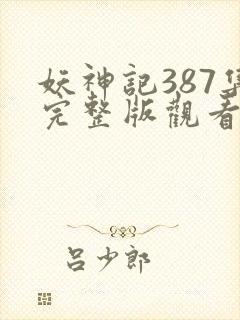 妖神記387集
完整版觀看
呂少郎